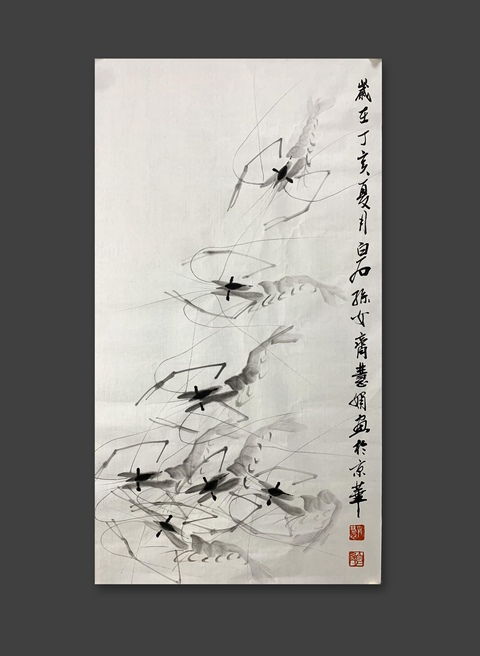 歲在丁亥夏月白石孫女齊慧娟畫於京華